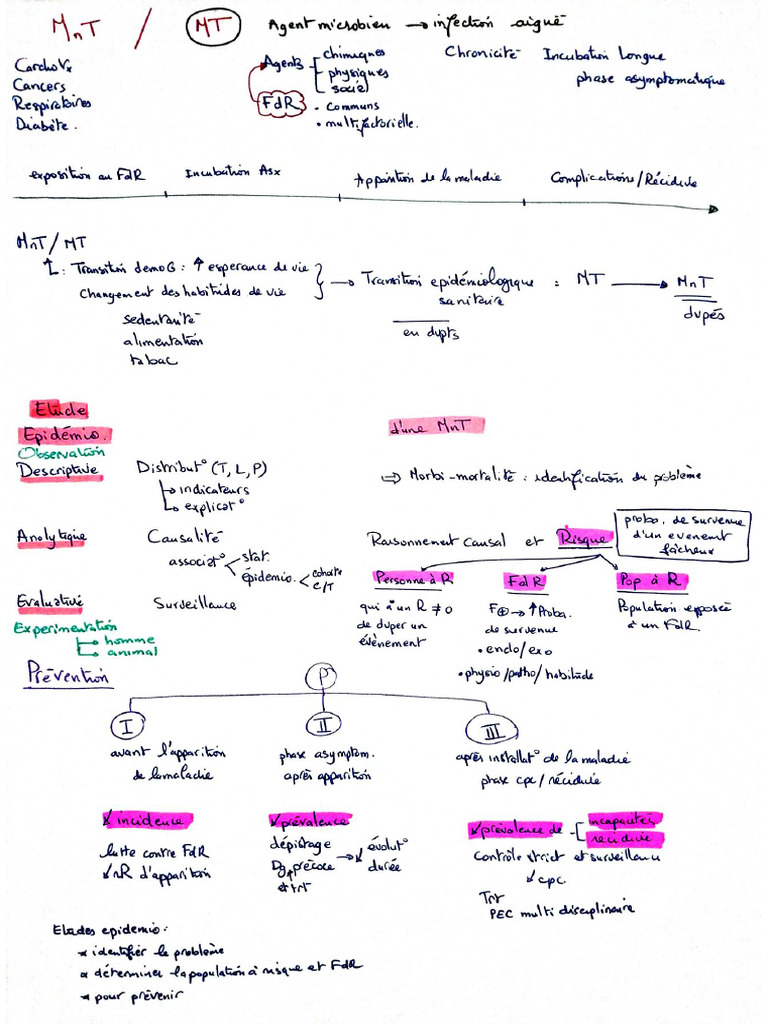 MnT / MT Agent microbien → infection aiguë
CardioVx
Cancers
Respiratoires
Diabète.
Agents
chimiques
physiques
social
FdR
• communs
• multifactorielle.
Chronicité
Incubation longue
phase asymptomatique
exposition au FdR
Incubation Asx
Apparition de la maladie
Complications/Récidive
MnT/MT
↳: Transition demoG: ↑ esperance de vie
Changement des habitudes de vie
sedentarité
alimentation
tabac
→ Transition epidémiologique : MT → MnT
sanitaire
en dvpts
dvpés
Etude
Epidémio. d'une MnT
Observation
Descriptive Distribut° (T, L, P)
↳ indicateurs
↳ explicat°
⇒ Morbi-mortalité : identification du problème
Analytique Causalité
associat° < stat.
épidemio. < cohorte
C/T
Raisonnement causal et Risque
probo. de survenue
d'un evenent
fâcheux
Evaluative Surveillance
Experimentation
↳ homme
↳ animal
Personne à R
qui a un R ≠ 0
de dvper un
évènement
FdR
F⊕ → ↑ Proba.
de survenue
• endo/exo
• physio/patho/habitude
Pop à R
Population exposée
à un FdR.
Prévention
P
I
avant l'apparition
de la maladie
↙ incidence
lutte contre FdR
↙ nR d'apparition
II
phase asymptom.
après apparition
↙ prévalence
dépistage
Dg précoce
et trt
→ ↙ évolut°
durée
III
après installat° de la maladie
phase cpx/récidive
↙ prévalence de
incapacités
récidive
Contrôle strict et surveillance
↙ cpc.
Trt
PEC multidisciplinaire
Etudes epidemio:
* identifier le problème
* déterminer la population à risque et FdR
* pour prévenir